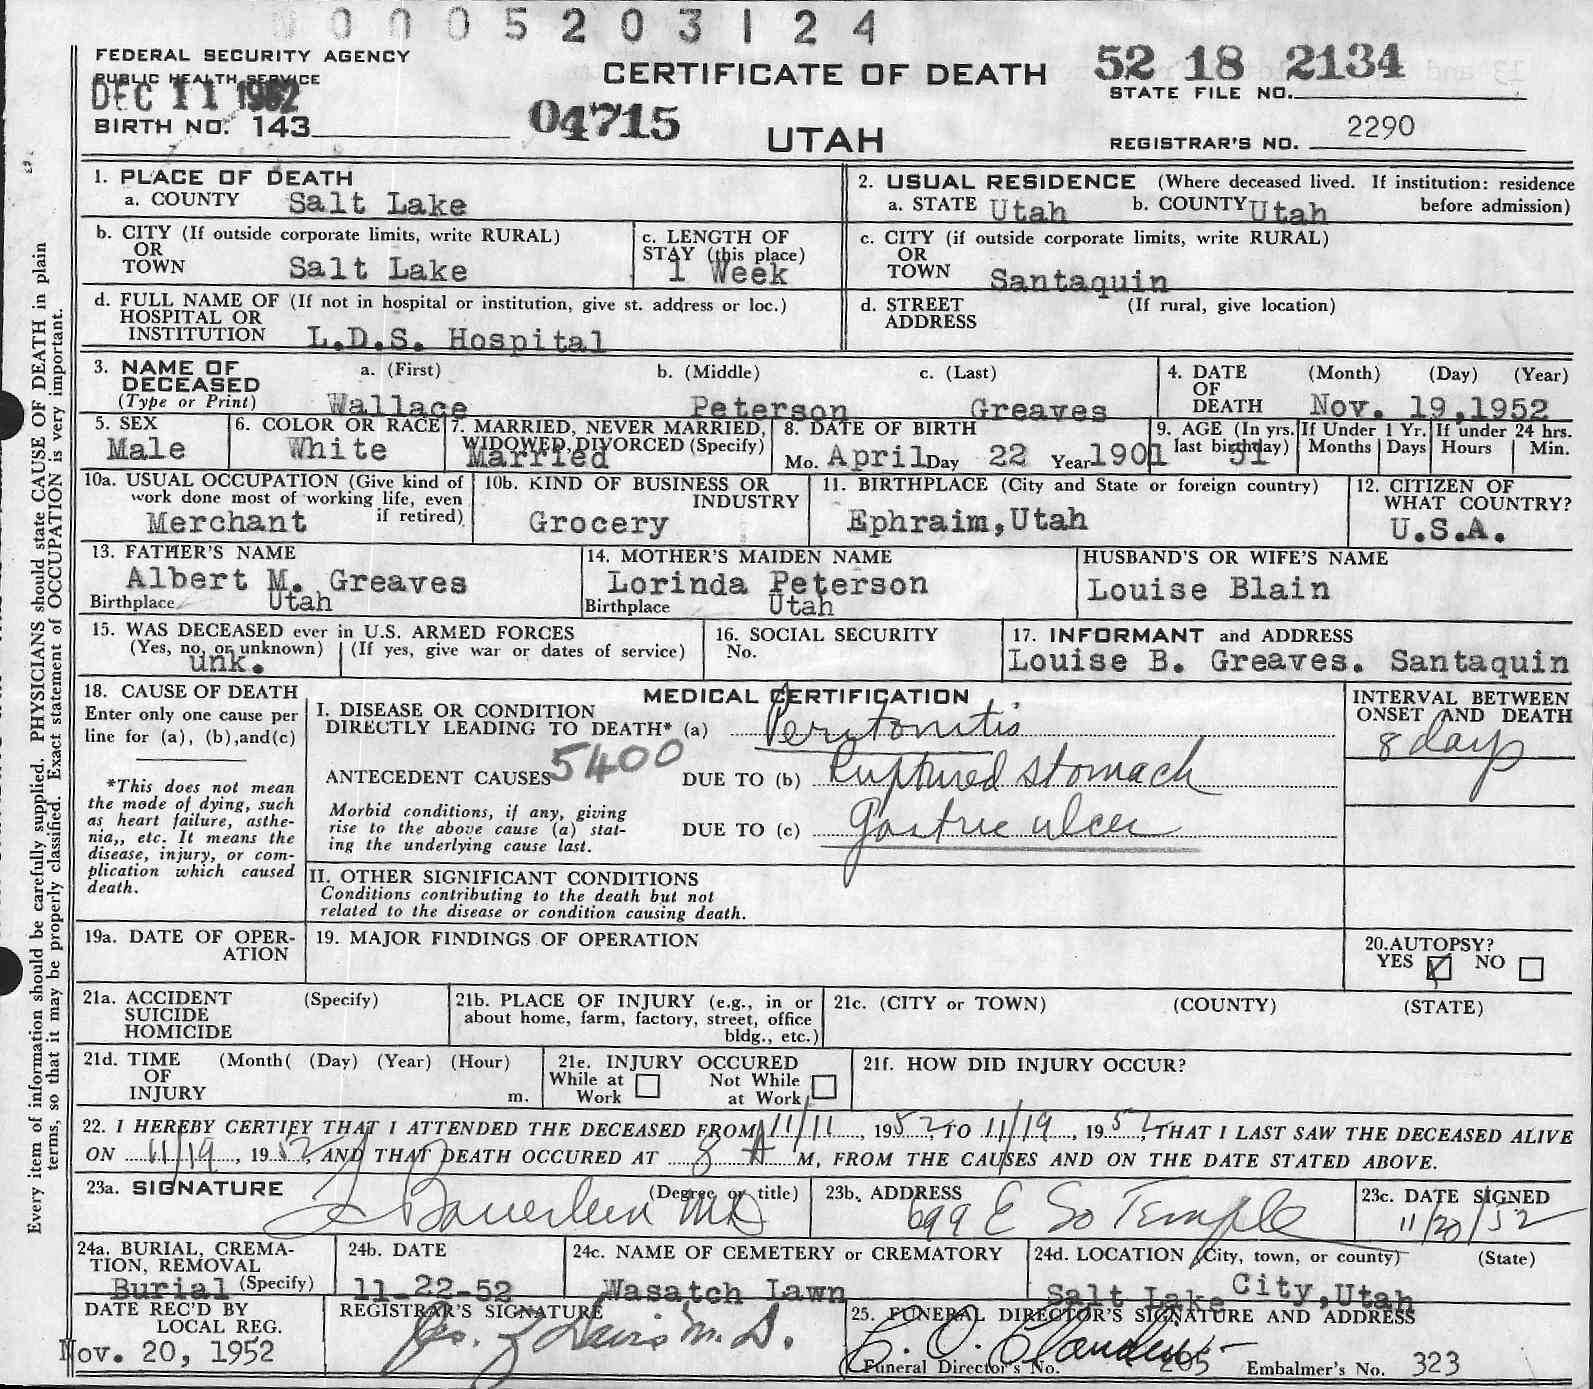 0 0 0 5 2 0 3 1 2 4
FEDERAL SECURITY AGENCY
PUBLIC HEALTH SERVICE
DEC 11 1952
BIRTH NO. 143
04715
CERTIFICATE OF DEATH
UTAH
52 18 2134
STATE FILE NO.
REGISTRAR'S NO. 2290
1. PLACE OF DEATH
a. COUNTY Salt Lake
2. USUAL RESIDENCE (Where deceased lived. If institution: residence before admission)
a. STATE Utah b. COUNTY Utah
b. CITY (If outside corporate limits, write RURAL)
OR
TOWN Salt Lake
c. LENGTH OF
STAY (this place)
1 Week
c. CITY (if outside corporate limits, write RURAL)
OR
TOWN Santaquin
d. FULL NAME OF (If not in hospital or institution, give st. address or loc.)
HOSPITAL OR
INSTITUTION L.D.S. Hospital
d. STREET (If rural, give location)
ADDRESS
3. NAME OF a. (First) b. (Middle) c. (Last)
DECEASED
(Type or Print) Wallace Peterson Greaves
4. DATE (Month) (Day) (Year)
OF
DEATH Nov. 19,1952
5. SEX
Male
6. COLOR OR RACE
White
7. MARRIED, NEVER MARRIED,
WIDOWED, DIVORCED (Specify)
Married
8. DATE OF BIRTH
Mo. April Day 22 Year 1901
9. AGE (In yrs. last birthday)
51
If Under 1 Yr.
Months Days
If under 24 hrs.
Hours Min.
10a. USUAL OCCUPATION (Give kind of
work done most of working life, even
if retired)
Merchant
10b. KIND OF BUSINESS OR
INDUSTRY
Grocery
11. BIRTHPLACE (City and State or foreign country)
Ephraim,Utah
12. CITIZEN OF
WHAT COUNTRY?
U.S.A.
13. FATHER'S NAME
Albert M. Greaves
Birthplace Utah
14. MOTHER'S MAIDEN NAME
Lorinda Peterson
Birthplace Utah
HUSBAND'S OR WIFE'S NAME
Louise Blain
15. WAS DECEASED ever in U.S. ARMED FORCES
(Yes, no, or unknown) (If yes, give war or dates of service)
unk.
16. SOCIAL SECURITY
No.
17. INFORMANT and ADDRESS
Louise B. Greaves. Santaquin
18. CAUSE OF DEATH
Enter only one cause per
line for (a), (b),and(c)
*This does not mean
the mode of dying, such
as heart failure, asthe-
nia,, etc. It means the
disease, injury, or com-
plication which caused
death.
MEDICAL CERTIFICATION
I. DISEASE OR CONDITION
DIRECTLY LEADING TO DEATH* (a) Peritonitis
5400
ANTECEDENT CAUSES DUE TO (b) Ruptured stomach
Morbid conditions, if any, giving
rise to the above cause (a) stat-
ing the underlying cause last.
DUE TO (c) Gastric ulcer
INTERVAL BETWEEN
ONSET AND DEATH
8 days
II. OTHER SIGNIFICANT CONDITIONS
Conditions contributing to the death but not
related to the disease or condition causing death.
19a. DATE OF OPER-
ATION
19. MAJOR FINDINGS OF OPERATION
20.AUTOPSY?
YES NO
21a. ACCIDENT (Specify)
SUICIDE
HOMICIDE
21b. PLACE OF INJURY (e.g., in or
about home, farm, factory, street, office
bldg., etc.)
21c. (CITY or TOWN) (COUNTY) (STATE)
21d. TIME (Month( (Day) (Year) (Hour)
OF
INJURY m.
21e. INJURY OCCURED
While at Work Not While at Work
21f. HOW DID INJURY OCCUR?
22. I HEREBY CERTIFY THAT I ATTENDED THE DECEASED FROM 11/11, 1952, TO 11/19, 1952, THAT I LAST SAW THE DECEASED ALIVE
ON 11/19, 1952, AND THAT DEATH OCCURED AT 8 A M, FROM THE CAUSES AND ON THE DATE STATED ABOVE.
23a. SIGNATURE (Degree or title)
MD
23b. ADDRESS
699 E So Temple
23c. DATE SIGNED
11/20/52
24a. BURIAL, CREMA-
TION, REMOVAL
Burial (Specify)
24b. DATE
11-22-52
24c. NAME OF CEMETERY or CREMATORY
Wasatch Lawn
24d. LOCATION (City, town, or county) (State)
Salt Lake City,Utah
DATE REC'D BY
LOCAL REG.
Nov. 20, 1952
REGISTRAR'S SIGNATURE
Davis M.D.
25. FUNERAL DIRECTOR'S SIGNATURE AND ADDRESS
Funeral Director's No. 205 Embalmer's No. 323
Every item of information should be carefully supplied. PHYSICIANS should state CAUSE OF DEATH in plain
terms, so that it may be properly classified. Exact statement of OCCUPATION is very important.